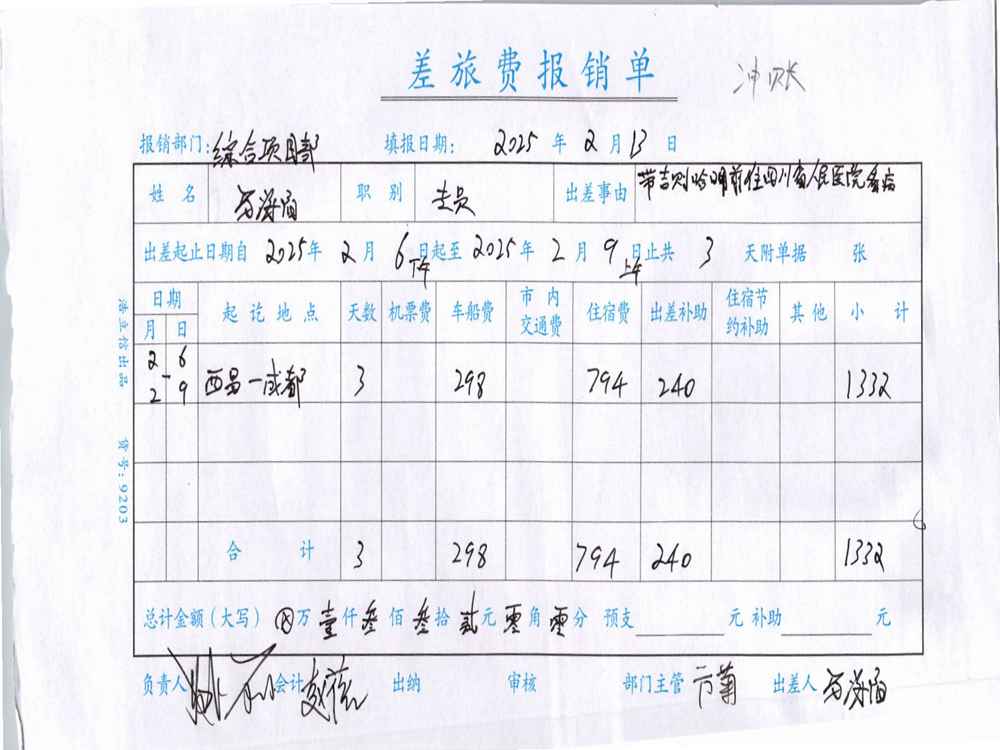 差旅费报销单 冲账
报销部门:综合项目部 填报日期: 2025 年 2 月 13 日
姓名 职别 专员 出差事由 带吉则哈明前往四川省人民医院看病
出差起止日期自 2025 年 2 月 6 日下午起至 2025 年 2 月 9 日上午止共 3 天附单据 张
日期 起讫地点 天数 机票费 车船费 市内交通费 住宿费 出差补助 住宿节约补助 其他 小计
月 日
2 6 - 2 9 西昌-成都 3 298 794 240 1332
合计 3 298 794 240 1332
总计金额(大写) ⊗万壹仟叁佰叁拾贰元零角零分 预支 元 补助 元
负责人 会计 出纳 审核 部门主管 出差人
浩立信出品 货号:9203